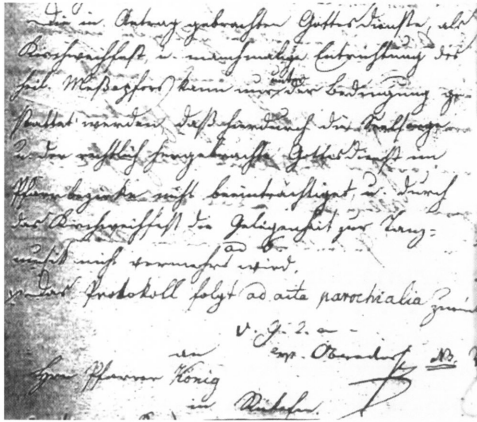 Die in Antrag gebrachten Gottesdienste, als
Kirchweihfest u. manchmalige Entrichtung des
heil. Meßopfers kann nur unter der Bedingung ge-
stattet werden, daß hierdurch die Seelsorge
u. der rechtlich hergebrachte Gottesdienst im
Pfarrbezirke nicht beeinträchtiget u. durch
das Kirchweihfest die Gelegenheit zur Tanz-
musik nicht vermehrt wird.
ad 6
das Protokoll folgt ad acta parochialia zurück
v. G. 2. a
an
Herrn Pfarrer König
in